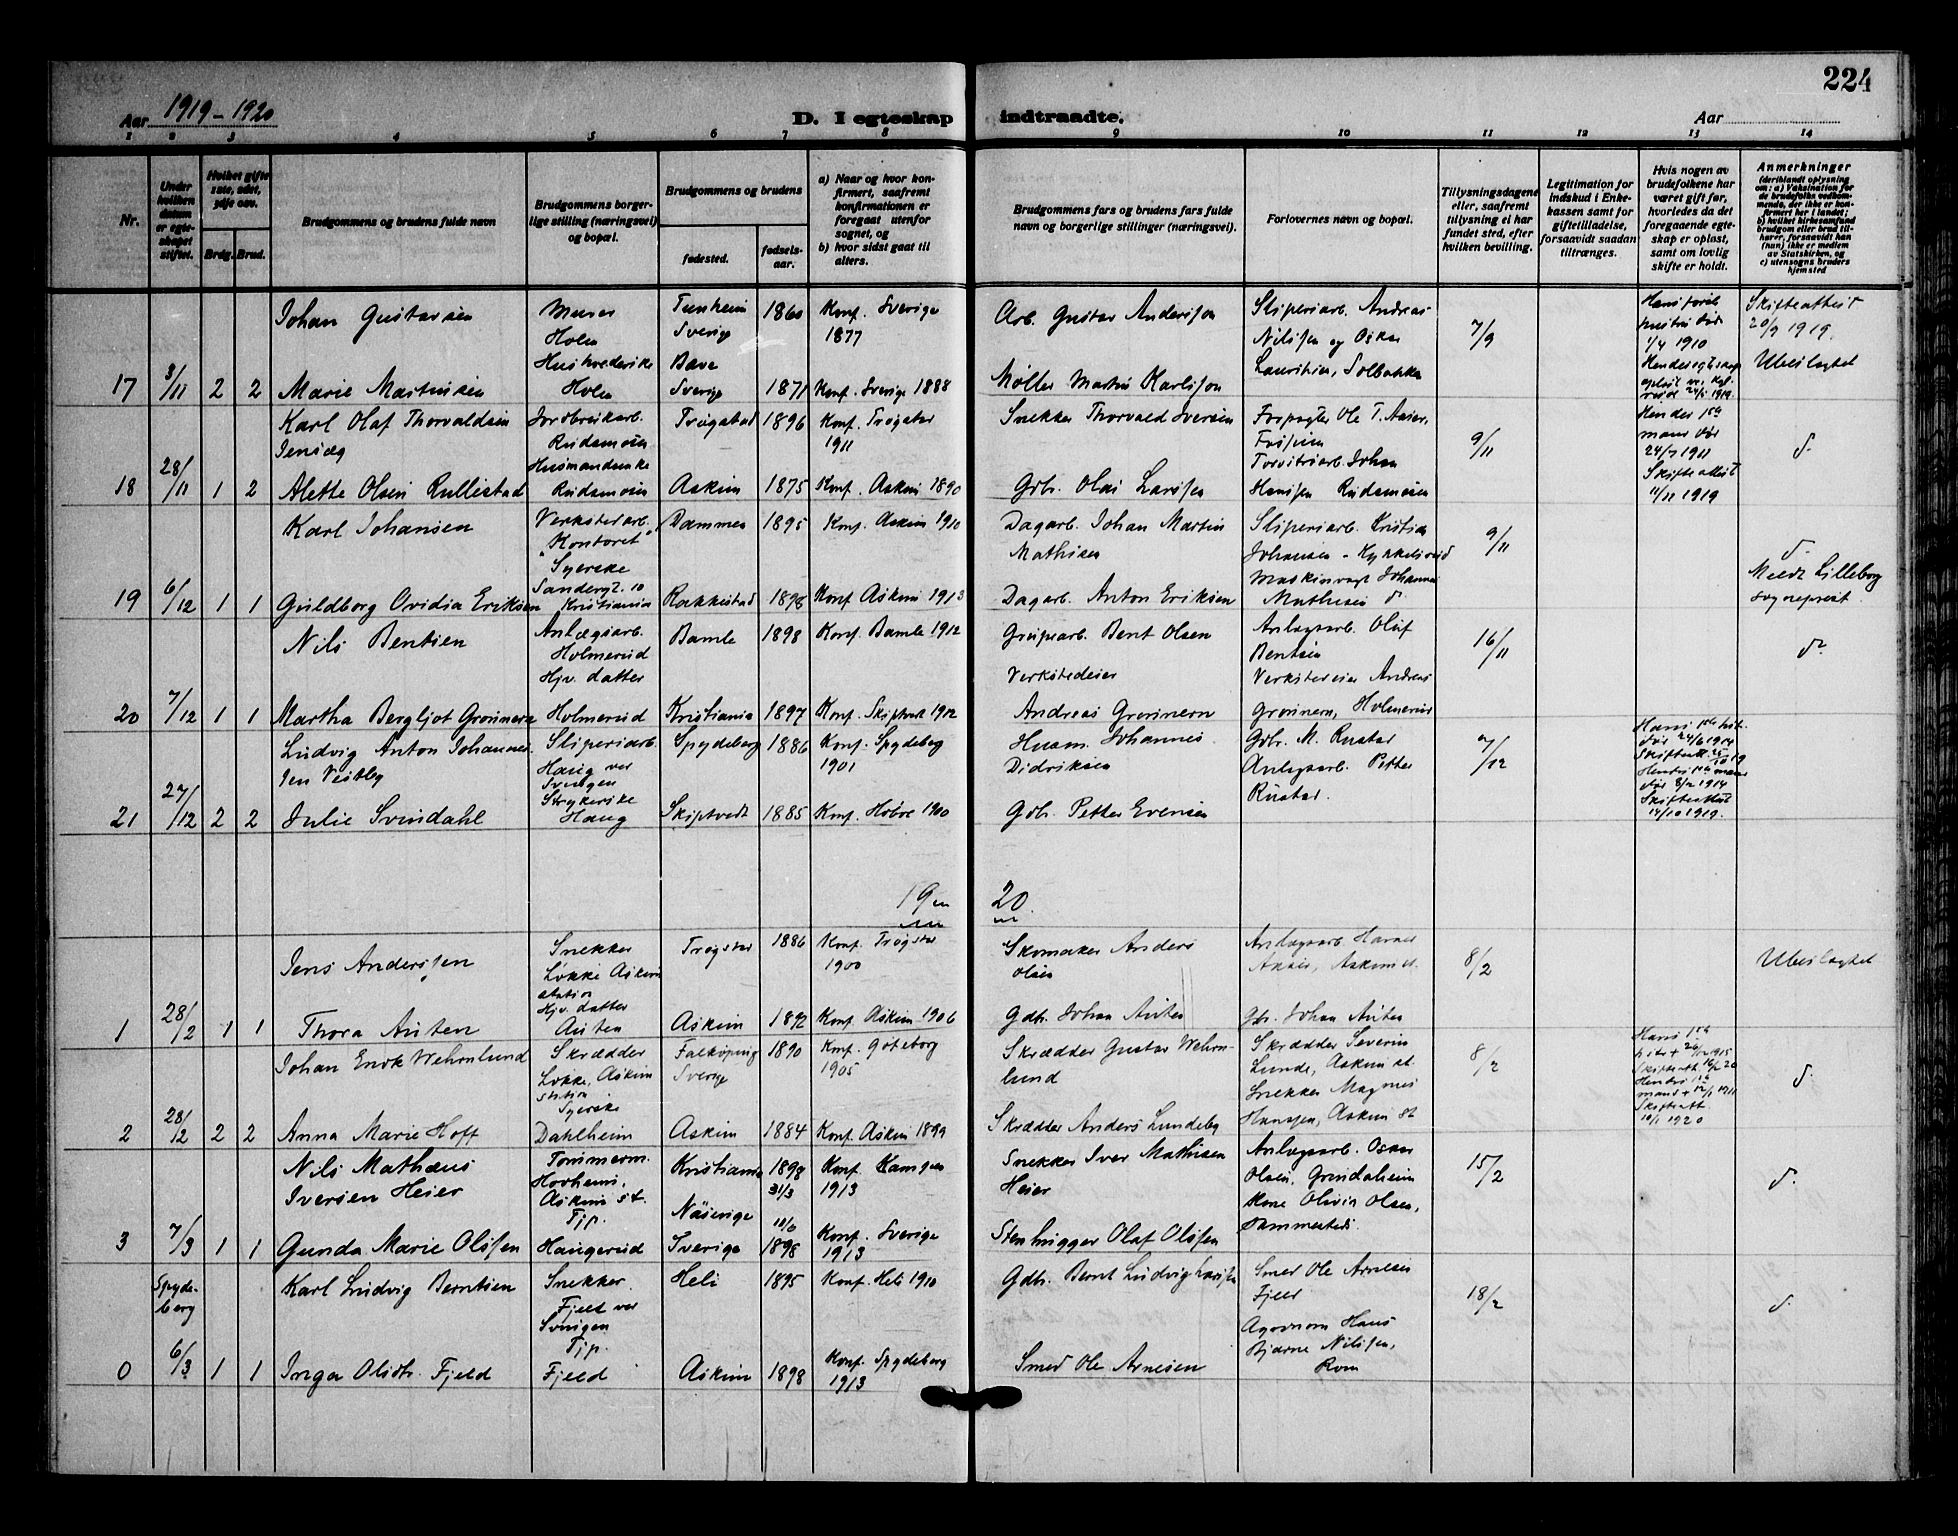 224
Aar 1919-1920
D. I egteskap indtraadte.
Aar
1 2 3 4 5 6 7 8 9 10 11 12 13 14
Nr.
Under hvilken datum er egteskapet stiftet.
Hvilket gifte 1ste, 2det, 3dje osv.
Brdg. Brud.
Brudgommens og brudens fulde navn
Brudgommens borgerlige stilling (næringsvei) og bopæl.
Brudgommens og brudens
fødested.
fødselsaar.
a) Naar og hvor konfirmert, saafremt konfirmationen er foregaat utenfor sognet, og
b) hvor sidst gaat til alters.
Brudgommens fars og brudens fars fulde navn og borgerlige stillinger (næringsvei).
Forlovernes navn og bopæl.
Tillysningsdagene eller, saafremt tillysning ei har fundet sted, efter hvilken bevilling.
Legitimation for indskud i Enkekassen samt for giftetilladelse, forsaavidt saadan tiltrænges.
Hvis nogen av brudefolkene har været gift før, hvorledes da det foregaaende egteskap er opløst, samt om lovlig skifte er holdt.
Anmerkninger
(deriblandt oplysning om: a) Vaksination for de brudefolks vedkommende, der ikke er konfirmert her i landet; b) hvilket kirkesamfund brudgom eller brud tilhører, forsaavidt han (hun) ikke er medlem av Statskirken, og c) utensogns bruders hjemsted
Johan Gustavsen
Murer
Holm
Sverige
1860
Konf. Sverige
1877
Arb. Gustav Andersson
Sliperiarb. Andreas
Nilssen og Oskar
7/9
1/4 1910
Skifteattest
20/9 1919.
17 8/11 2 2 Marie Martinsen
Holm
Sverige
1871
Konf. Sverige 1888
Møller Martin Karlsson
Lauritsen, Solbakken
Ubeslegtet
Karl Olaf Thorvaldsen
Jordbrukarb.
Rudsmosen
Trøgstad 1896
Konf. Trøgstad
1911
Snekker Thorvald Iversen
Forpagter Ole T.
9/11
Hendes 1ste
mand død
24/7 1911
d.
18 28/11 1 2 Alette Olsen Rullestad
Husmandsenke
Rudsmosen
Askim 1875
Konf. Askim 1890
Gdbr. Olai Larssen
Johan
Hanssen Rudsmosen
Skifteattest
11/11 1919
Karl Johansen
Verkstedarb.
"Kontoret"
Dammen 1895
Konf. Askim 1910
Dagarb. Johan Martin
Mathisen
Sliperiarb. Kristian
Johansen - Kykkelsrud
9/11
d.
19 6/12 1 1 Guldborg Ovidia Eriksen
Syerske
Sandergt. 10
Kristiania
Rakkestad 1898
Konf. Askim 1913
Dagarb. Anton Eriksen
Maskinvagt Johannes
Mathisen d.
Lilleborg
sogneprest.
Nils Bentsen
Anlægsarb.
Holmerud
Bamle 1898
Konf. Bamle 1912
Gruvearb. Bent Olsen
Anlægsarb. Oluf
Bentsen
16/11
d.
20 7/12 1 1 Martha Bergljot Grønnern
Hjv. datter
Holmerud
Kristiania 1897
Konf. Skiptvet 1912
Verkstedeier
Andreas Grønnern
Verkstedeier Andreas
Grønnern, Holmerud
Ludvig Anton Johannessen Vestby
Sliperiarb.
Haug ved
Svingen
Spydeberg 1886
Konf. Spydeberg
1901
Husm. Johannes
Didriksen
Gdbr. M. Rustad
7/12
21 27/12 2 2 Julie Svindahl
Strykerske
Haug
Skiptvedt 1885
Konf. Hobøl 1900
Gdbr. Petter Evensen
Anlægsarb. Petter
Rustad.
Skifteattest
14/10 1919.
19 20
Jens Anderssen
Snekker
Løkke Askim
station
Trøgstad 1886
Konf. Trøgstad
1900
Skomaker Anders
Olsen
Anlægsarb.
Askim st.
8/2
Ubeslegtet
1 28/2 1 1 Thora Auten
Hjv. datter
Auten
Askim 1892
Konf. Askim 1906
Gdbr. Johan Auten
Gbr. Johan Auten
Johan Enok Wehrnlund
Skrædder
Løkke, Askim
station
Falköping
Sverige
1890
Konf. Göteborg
1905
Skrædder Gustav Wehrnlund
Skrædder Severin
Lunde, Askim st.
8/2
Hans 1ste
d.
2 28/12 2 2 Anna Marie Hoff
Syerske
Dahlheim
Askim 1884
Konf. Askim 1899
Skrædder Anders Lundeby
Snekker Magnus
Hanssen, Askim st
Skifteatt.
10/1 1920
Nils Mathæus
Iversen Heier
Tømmerm.
Hovheim,
Askim st.
Kristiania 1898
31/3
Konf. Kampen
1913
Snekker Iver Mathisen
Heier
Anlægsarb. Oskar
Olsen, Grindaheim
15/2
d.
3 7/3 1 1 Gunda Marie Olssen
Tjp.
Haugerud
Sverige
1898
Konf. Sverige
1913
Stenhugger Olaf Olssen
Kone Olivia Olsen,
sammesteds.
Spydeberg
Karl Ludvig Berntsen
Snekker
Fjeld ved
Svingen
Heli 1895
Konf. Heli 1910
Gdbr. Bernt Ludvig Larssen
Smed Ole Arnesen
Fjeld
18/2
d.
0 6/3 1 1 Inga Olsdtr. Fjeld
Tjp.
Fjeld
Askim 1898
Konf. Spydeberg
1913
Smed Ole Arnesen
Agronom Hans
Bjarne Nilssen,
Rom